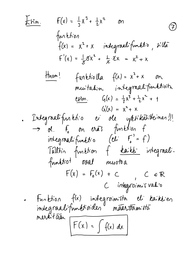 Esim. F(x) = 1/3 x³ + 1/2 x² on
funktion
f(x) = x² + x integraalifunktio, sillä
F'(x) = 1/3·3x² + 1/2·2x = x² + x
Huom! Funktiolla f(x) = x² + x on
muitakin integraalifunktioita
esim. G(x) = 1/3 x³ + 1/2 x² + 1
G'(x) = x² + x
• Integraalifunktio ei ole yksikäsitteinen!!
→ ol. F₀ on eräs funktion f
integraalifunktio (eli F₀' = f)
Tällöin funktion f kaikki integraali-
funktiot ovat muotoa
F(x) = F₀(x) + C , C ∈ ℝ
C integroimisvakio
• Funktion f(x) integroimista eli kaikkien
integraalifunktioiden määräämistä
merkitään
F(x) = ∫ f(x) dx